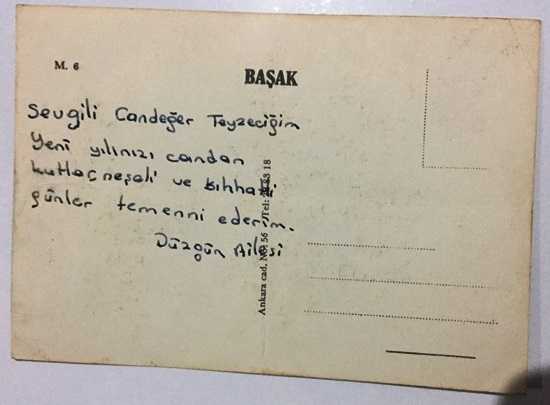 M. 6
BAŞAK
Sevgili Candeğer Teyzeciğim
Yeni yılınızı candan
kutlar neşeli ve sıhhatli
günler temenni ederim.
Düzgün Ailesi
Ankara cad. No. 56 Tel: 18